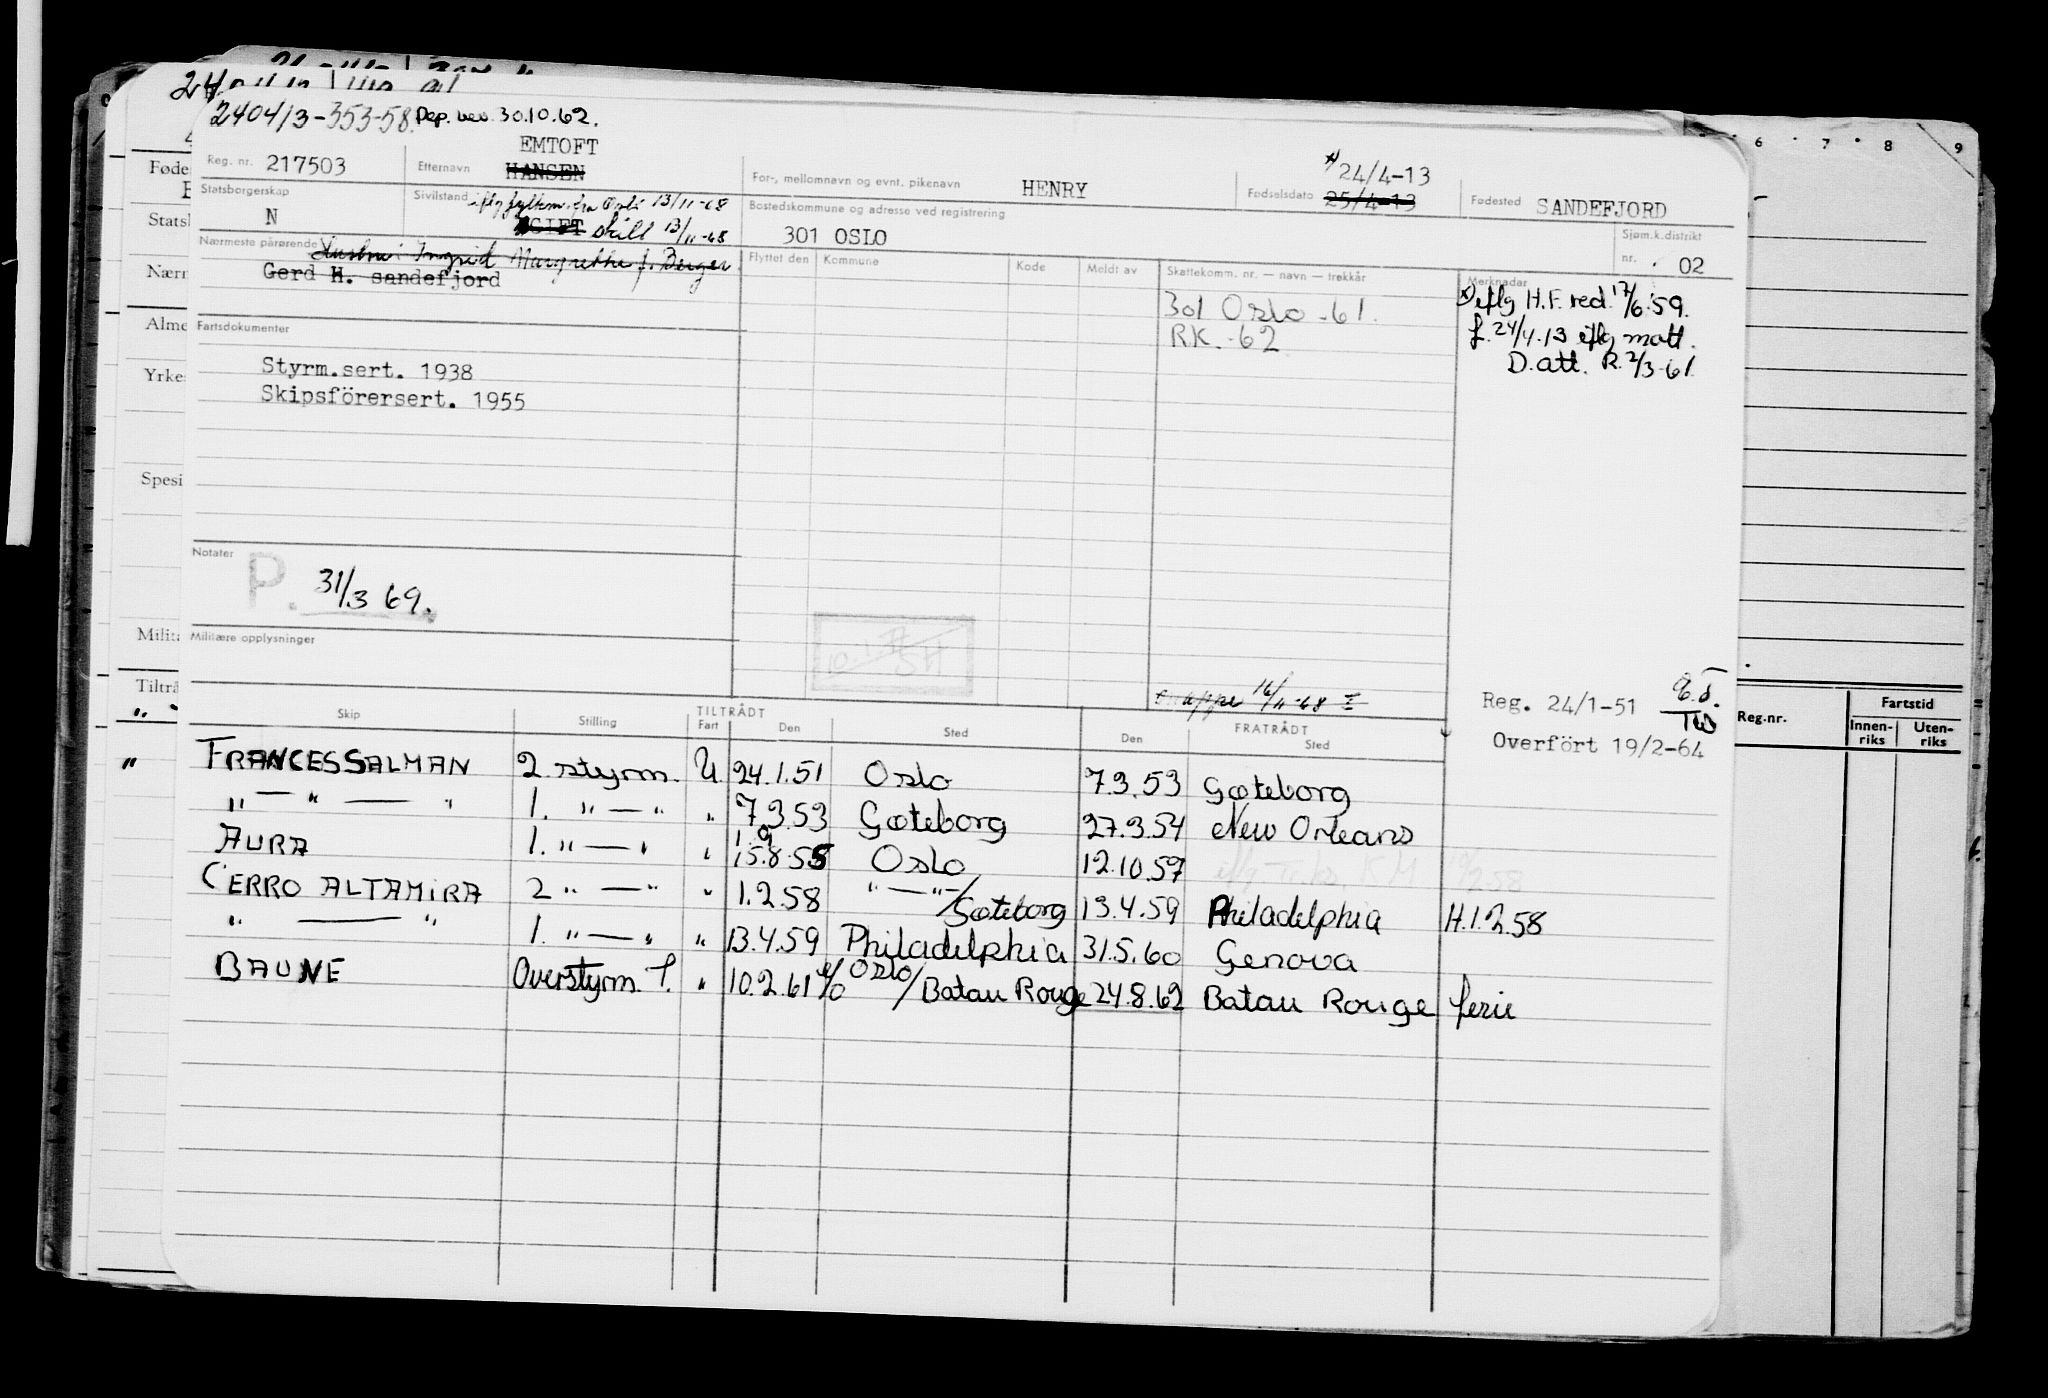 240413-353-58. Dep. bev. 30.10.62.
Reg. nr. 217503
Etternavn EMTOFT
HANSEN
For-, mellomnavn og evnt. pikenavn HENRY
Fødselsdato 24/4-13
25/4-13
Fødested SANDEFJORD
Statsborgerskap N
Sivilstand iflg fra Oslo 13/11-68
GIFT skilt 13/11-68
Bostedskommune og adresse ved registrering
301 OSLO
Sjøm.k.distrikt
nr. 02
Nærmeste pårørende Hustru: Ingrid Margrethe f. Berger
Gerd H. sandefjord
Flyttet den Kommune Kode Meldt av Skattekomm. nr. — navn — trekkår Merknader
301 Oslo -61.
RK. -62
iflg H.F. red. 17/6-59.
f. 24/4-13 iflg mott.
D. att. R. 2/3-61
Fartsdokumenter
Styrm.sert. 1938
Skipsförersert. 1955
Notater
P. 31/3 69.
Militære opplysninger
16/11-68
Reg. 24/1-51
Overfört 19/2-64
Skip Stilling TILTRÅDT Fart Den Sted FRATRÅDT Den Sted
FRANCES SALMAN 2. styrm. U. 24.1.51 Oslo 7.3.53 Gøteborg
" — " — " 1. " — " " 7.3.53 Gøteborg 27.3.54 New Orleans
AURA 1. " — " " 15.8.55 Oslo 12.10.57
CERRO ALTAMIRA 2 " — " " 1.2.58 " — " / Gøteborg 13.4.59 Philadelphia H.1.2.58
" — " 1. " — " " 13.4.59 Philadelphia 31.5.60 Genova
BAUNE Overstyrm. " 10.2.61 Oslo / Batau Rouge 24.8.62 Batau Rouge ferie
Føde
Stats
Nærm
Alme
Yrke
Spesi
Milita
Tiltrå
6 7 8 9
Reg.nr.
Fartstid
Innen-
riks
Uten-
riks